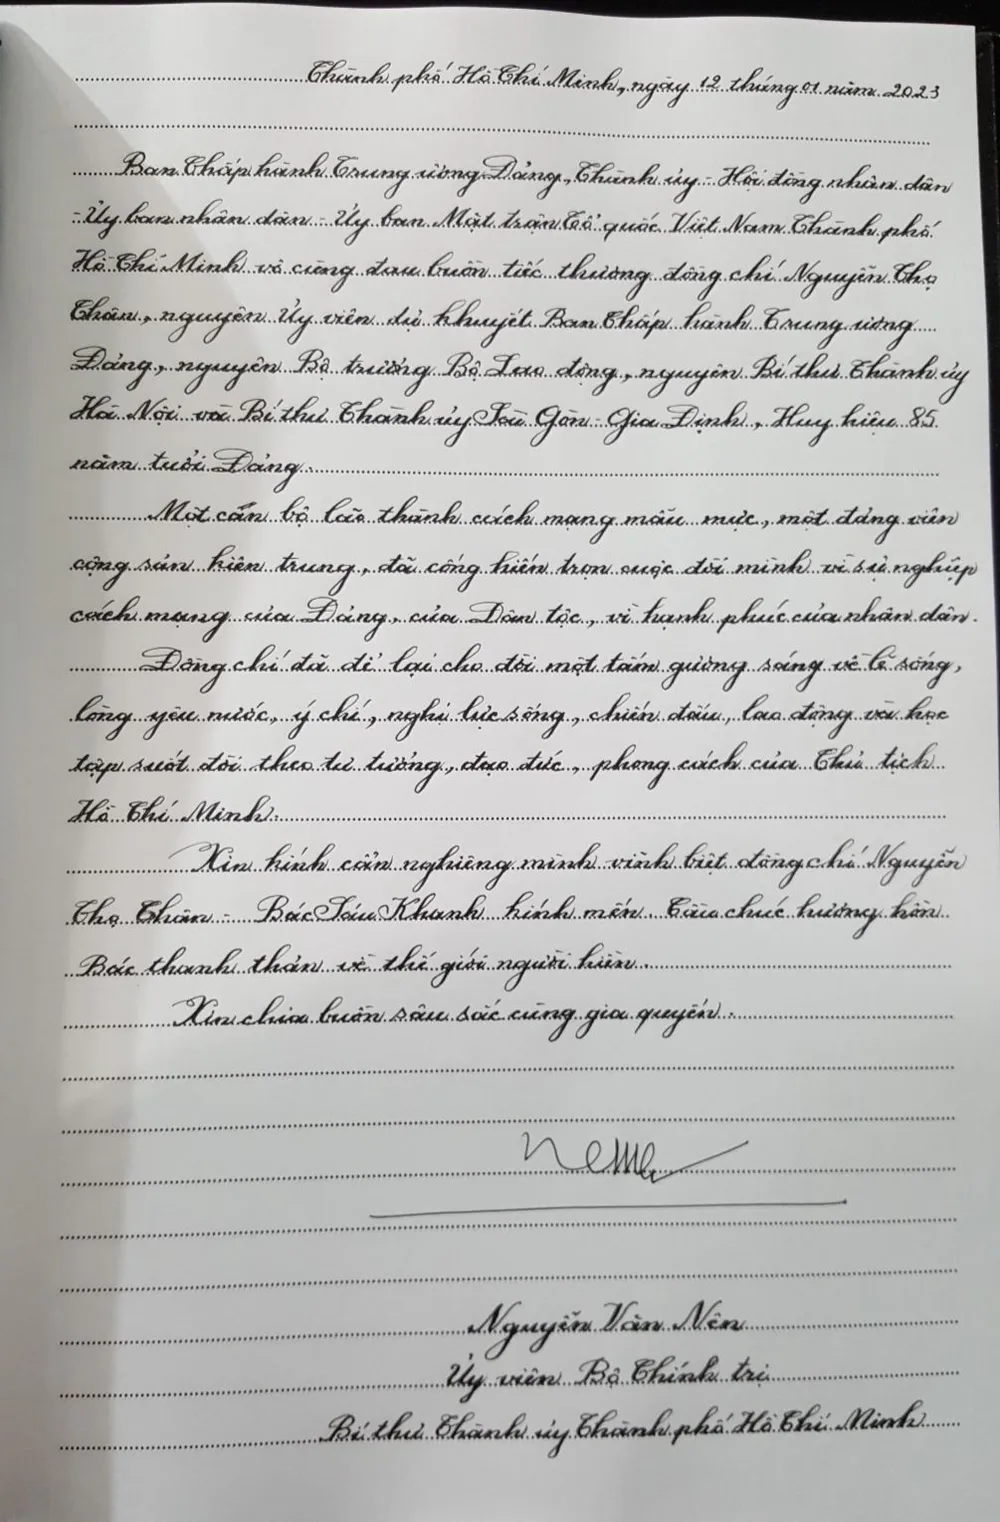 Thành phố Hồ Chí Minh, ngày 12 tháng 01 năm 2023
Ban Chấp hành Trung ương Đảng, Thành ủy - Hội đồng nhân dân
- Ủy ban nhân dân - Ủy ban Mặt trận Tổ quốc Việt Nam Thành phố
Hồ Chí Minh vô cùng đau buồn tiếc thương đồng chí Nguyễn Thọ
Chân, nguyên Ủy viên dự khuyết Ban Chấp hành Trung ương
Đảng, nguyên Bộ trưởng Bộ Lao động, nguyên Bí thư Thành ủy
Hà Nội và Bí thư Thành ủy Sài Gòn - Gia Định, Huy hiệu 85
năm tuổi Đảng.
Một cán bộ lão thành cách mạng mẫu mực, một đảng viên
cộng sản kiên trung, đã cống hiến trọn cuộc đời mình vì sự nghiệp
cách mạng của Đảng, của Dân tộc, vì hạnh phúc của nhân dân.
Đồng chí đã để lại cho đời một tấm gương sáng về lẽ sống,
lòng yêu nước, ý chí, nghị lực sống, chiến đấu, lao động và học
tập suốt đời theo tư tưởng, đạo đức, phong cách của Chủ tịch
Hồ Chí Minh.
Xin kính cẩn nghiêng mình vĩnh biệt đồng chí Nguyễn
Thọ Chân - Bác Sáu Khanh kính mến. Cầu chúc hương hồn
Bác thanh thản về thế giới người hiền.
Xin chia buồn sâu sắc cùng gia quyến.
Nguyễn Văn Nên
Ủy viên Bộ Chính trị
Bí thư Thành ủy Thành phố Hồ Chí Minh